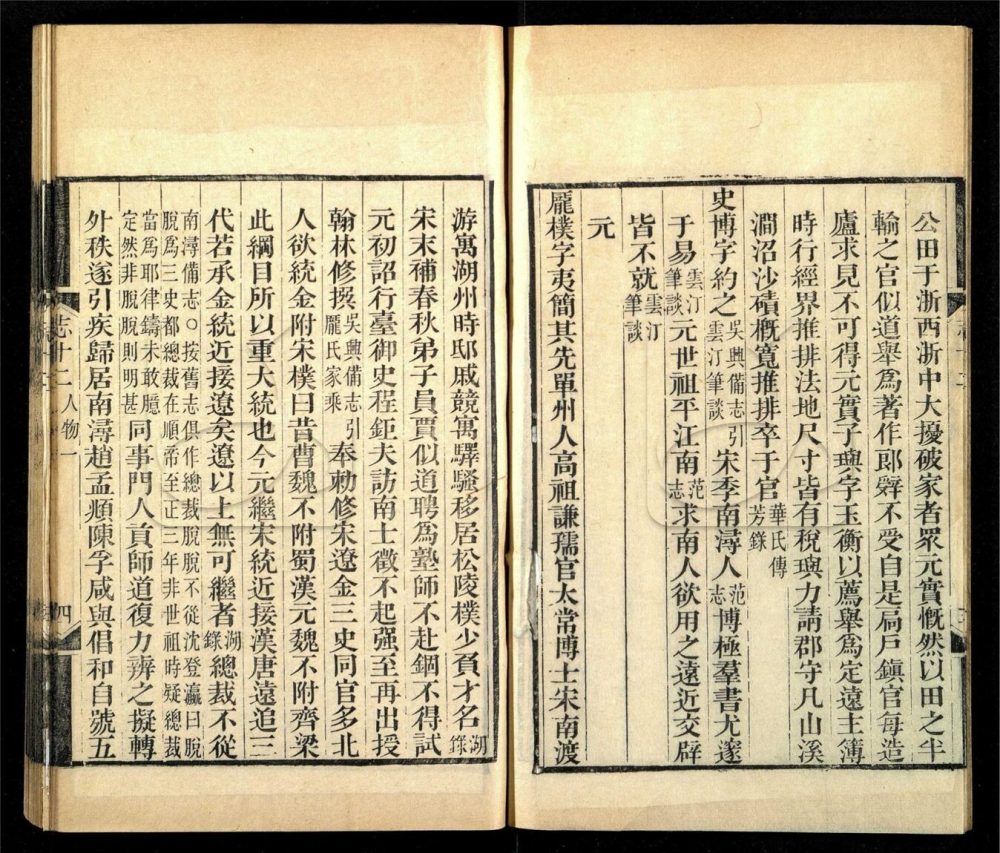 公田于浙西浙中大擾破家者眾元實慨然以田之半
輸之官似道舉爲著作郎辤不受自是扃戶鎮官每造
廬求見不可得元實子璵字玉衡以薦舉爲定遠主簿
時行經界推排法地尺寸皆有稅璵力請郡守凡山溪
澗沼沙磧概寬推排卒于官華氏傳芳錄
史博字約之吳興備志引雲汀筆談宋季南潯人范志博極羣書尤邃
于易雲汀筆談元世祖平江南范志求南人欲用之遠近交辟
皆不就雲汀筆談
元
龐樸字夷簡其先單州人高祖謙孺官太常博士宋南渡
游寓湖州時邸戚競寓驛騷移居松陵樸少負才名湖錄
宋末補春秋弟子員賈似道聘爲塾師不赴錮不得試
元初詔行臺御史程鉅夫訪南士徵不起强至再出授
翰林修撰吳興備志引龐氏家乘奉勅修宋遼金三史同官多北
人欲統金附宋樸曰昔曹魏不附蜀漢元魏不附齊梁
此綱目所以重大統也今元繼宋統近接漢唐遠追三
代若承金統近接遼矣遼以上無可繼者湖錄總裁不從
南潯備志○按舊志俱作總裁脫脫不從沈登瀛曰脫
脫爲三史都總裁在順帝至正三年非世祖時疑總裁
當爲耶律鑄未敢臆
定然非脫脫則明甚同事門人貢師道復力辨之擬轉
外秩遂引疾歸居南潯趙孟頫陳孚咸與倡和自號五
志十二 人物一
四